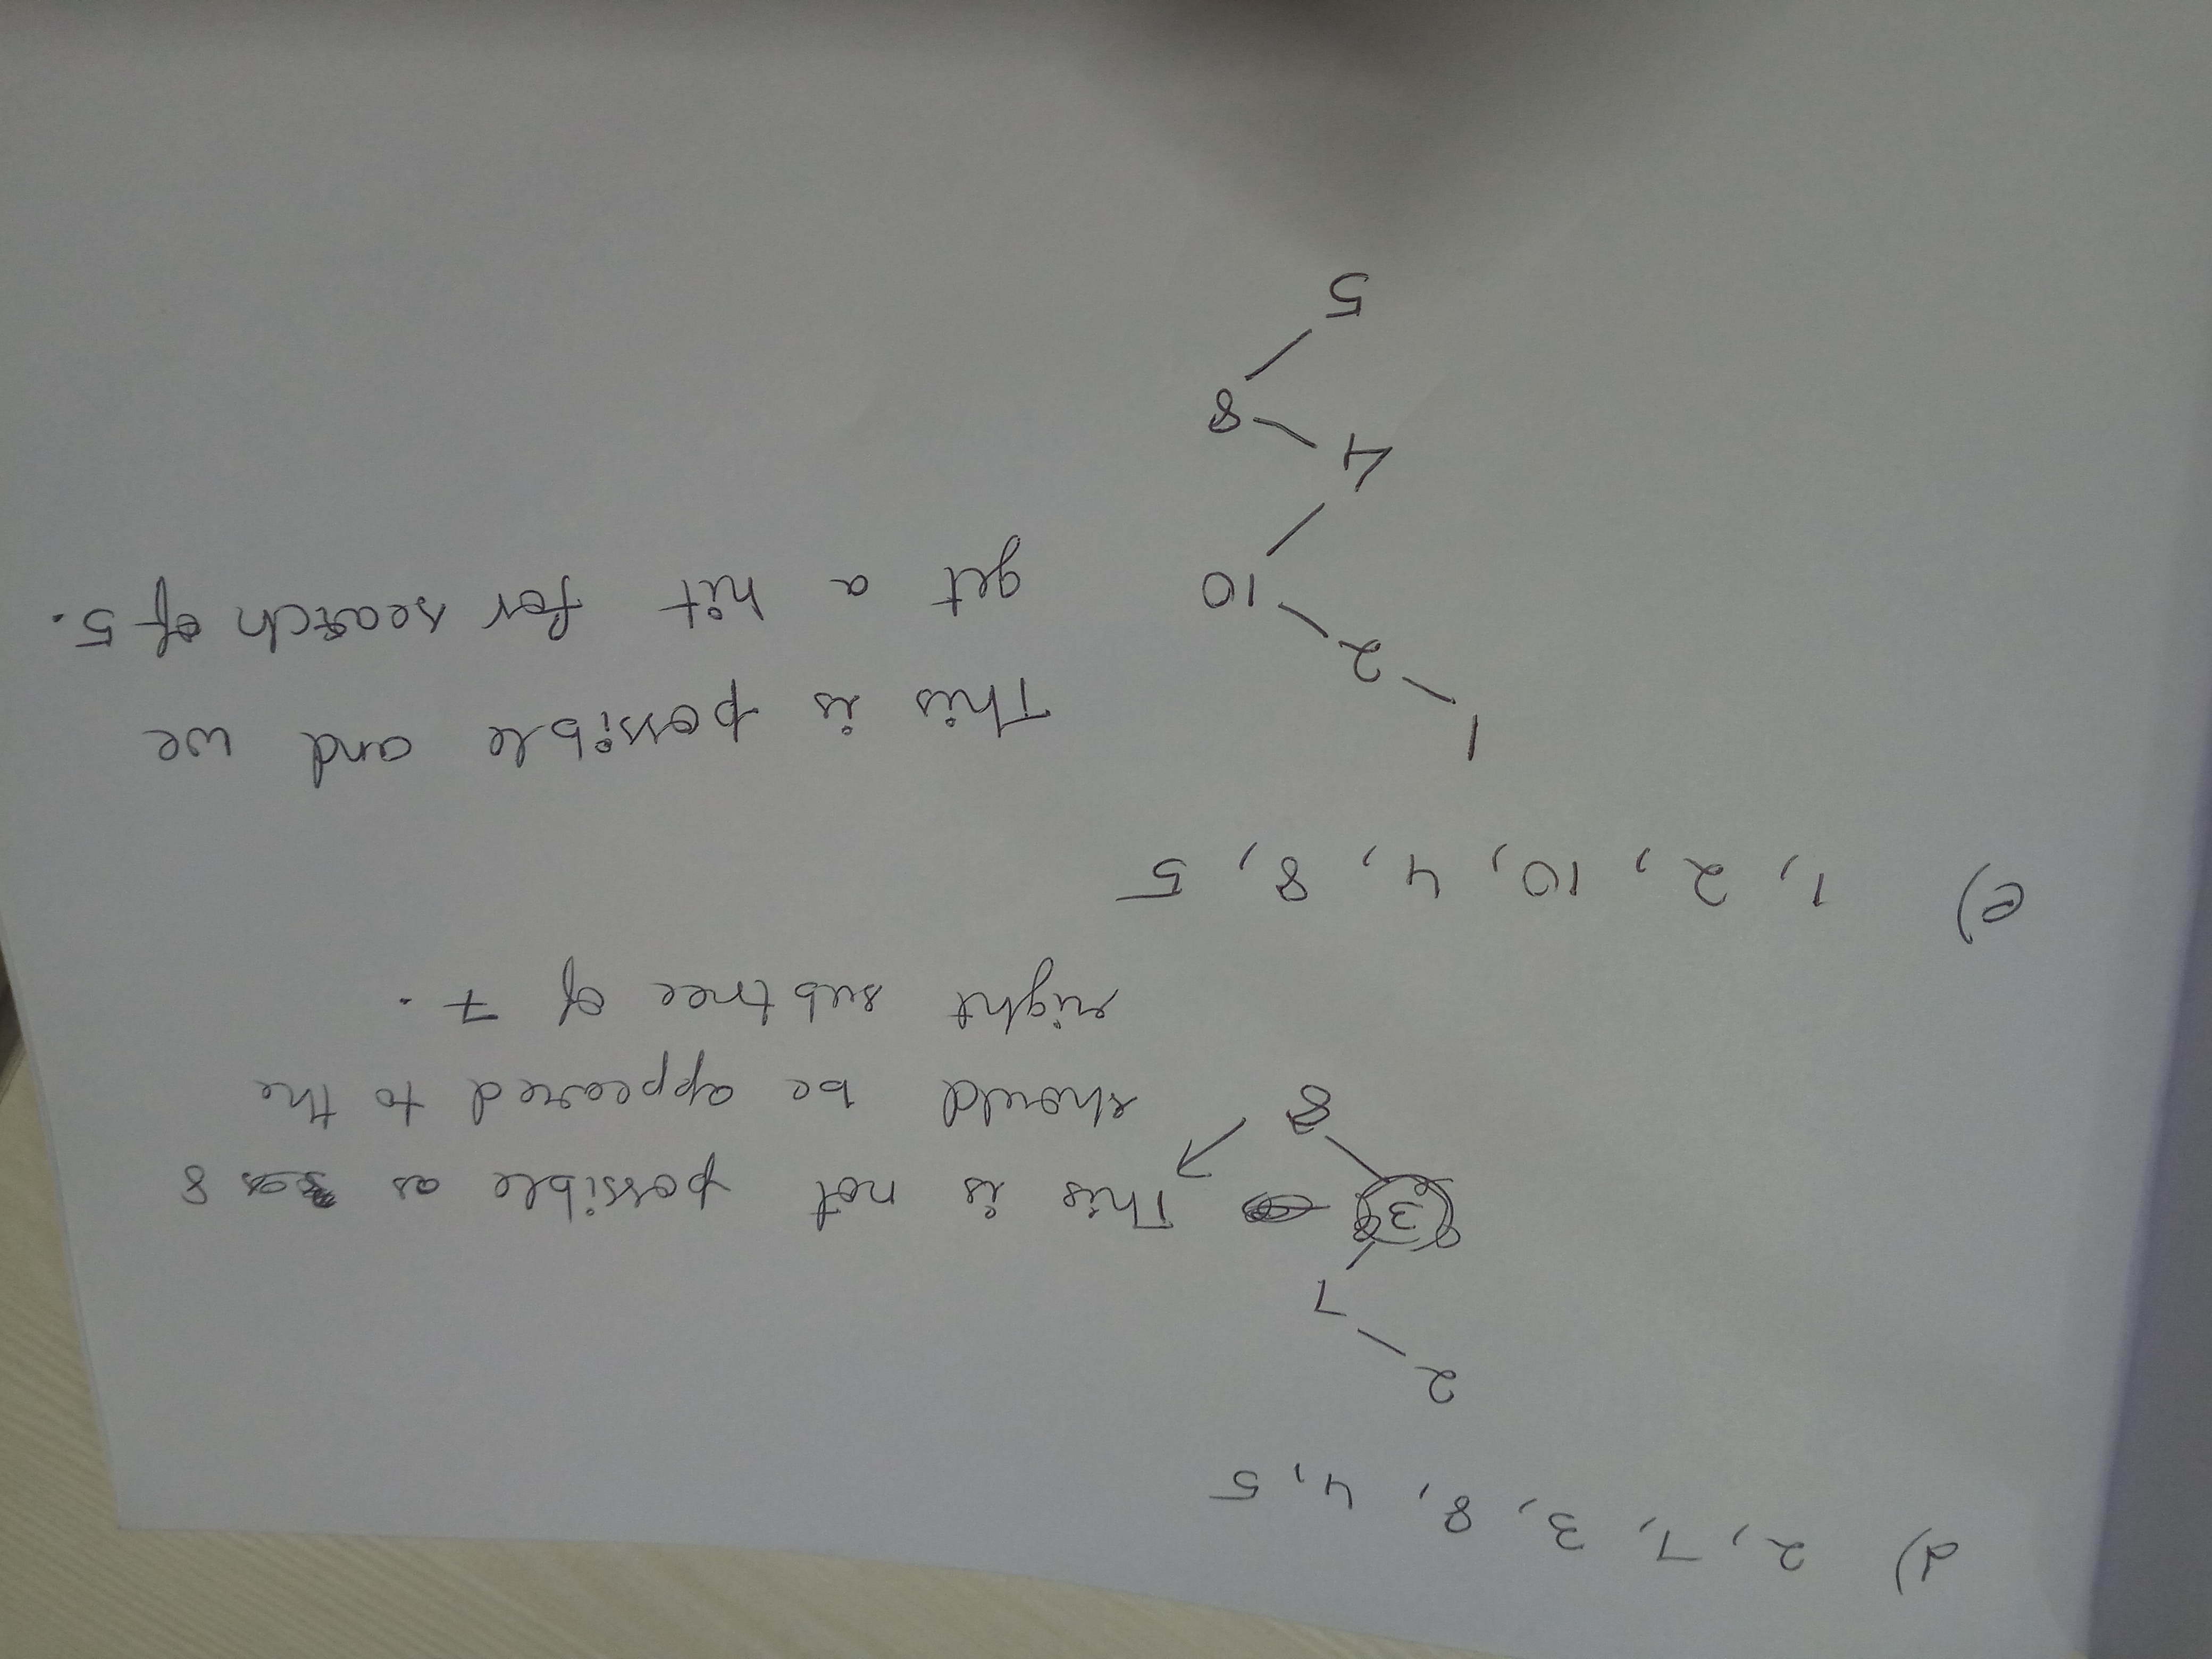 d) 2, 7, 3, 8, 4, 5
2
7
3
This is not possible as 8
8
should be appeared to the
right subtree of 7.
e) 1, 2, 10, 4, 8, 5
1
This is possible and we
2
10
get a hit for search of 5.
4
8
5